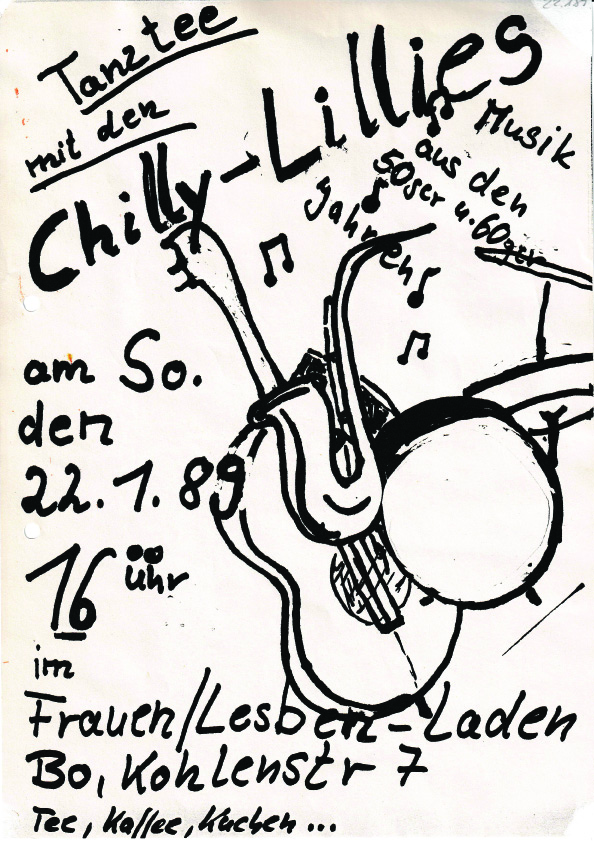 22.1.89
Tanztee
mit den
Chilly-Lillies
Musik
aus den
50ger u. 60ger
Jahren
am So.
den
22.1.89
16⁰⁰ Uhr
im
Frauen/Lesben-Laden
Bo, Kohlenstr 7
Tee, Kaffee, Kuchen ...